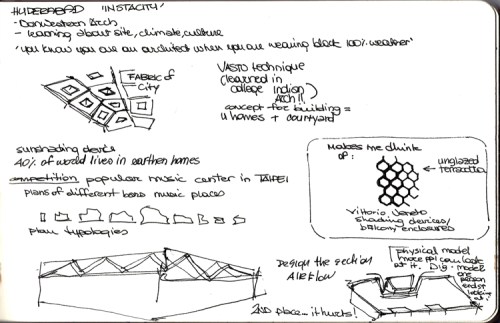 HYDERABAD 'INSTACITY'
- Non Western Arch
- learning about site, climate, culture
'you know you are an architect when you are wearing black 100% weather'
FABRIC of
CITY
VASTU technique
(learned in
college Indian
Arch!!)
concept for building =
4 homes + courtyard
sunshading device
40% of world lives in earthen homes
competition popular music center in TAIPEI
plans of different bars music places
plan typologies
Makes me think
of:
unglazed
terracotta
Vittorio Veneto
shading devices/
balcony enclosures
DESIGN the section
AIRFLOW
2ND place... it hurts!
Physical model
more ppl can look
at it. Dig. model
one
person
ends up
looking
at it